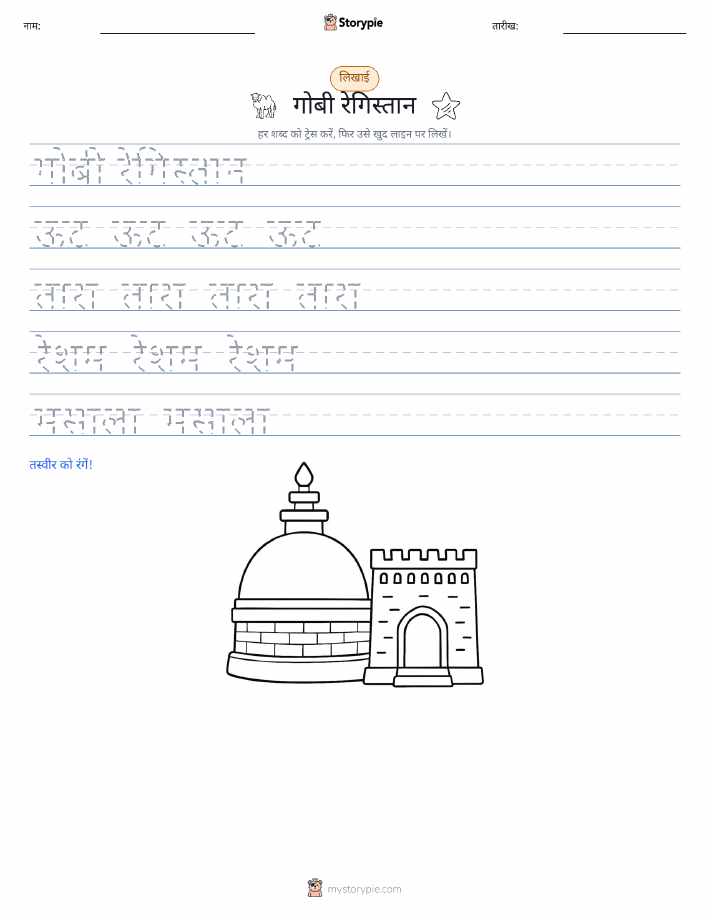 नाम:
Storypie
तारीख:
लिखाई
गोबी रेगिस्तान
हर शब्द को ट्रेस करें, फिर उसे खुद लाइन पर लिखें।
गोबी रेगिस्तान
ऊट ऊट ऊट ऊट
तारा तारा तारा तारा
रेशम रेशम रेशम
मसाला मसाला
तस्वीर को रंगें!
mystorypie.com